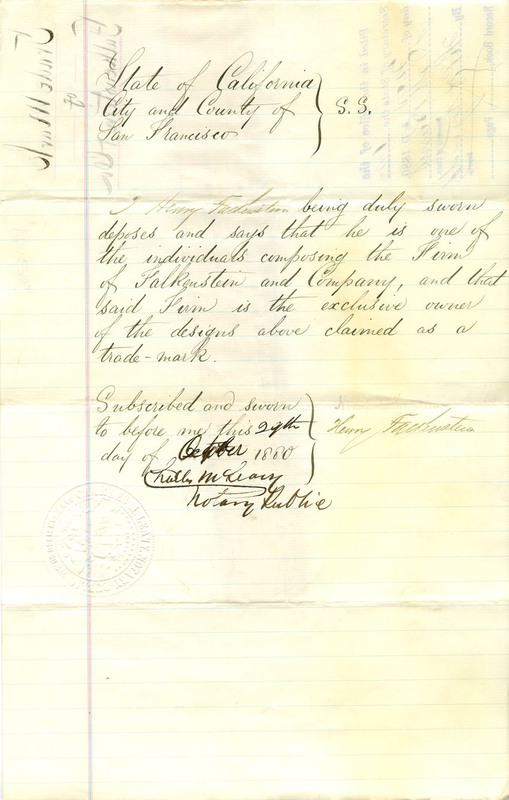 State of California
City and County of
San Francisco
S.S.
I Henry Falkenstein being duly sworn
deposes and says that he is one of
the individuals composing the Firm
of Falkenstein and Company, and that
said Firm is the exclusive owner
of the designs above claimed as a
trade-mark.
Subscribed and sworn
to before me this 29th
day of October 1880
Henry Falkenstein
Notary Public